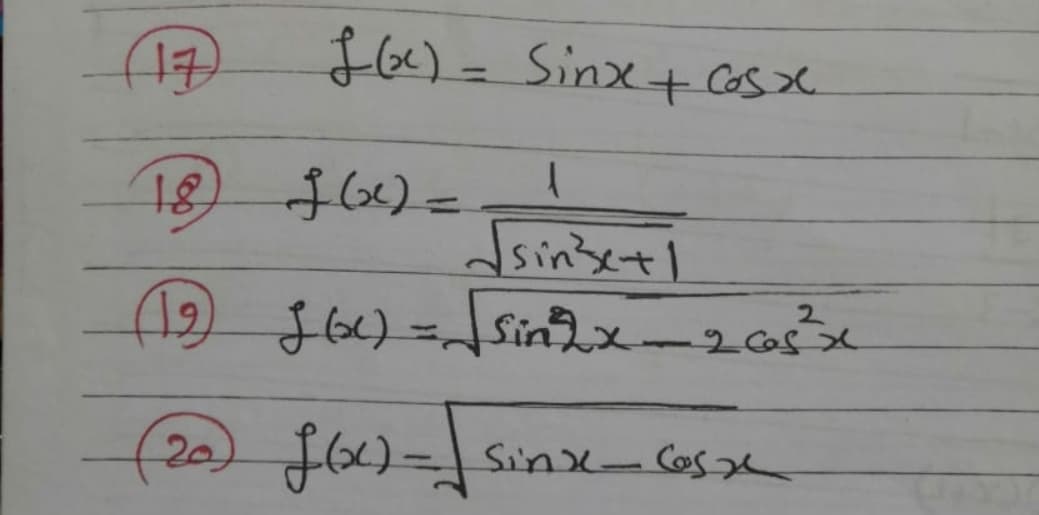 17 f(x) = Sinx + Cosx
18 f(x) = 1/√(sin²x+1)
19 f(x) = √(sin2x - 2cos²x)
20 f(x) = √(sinx - Cosx)